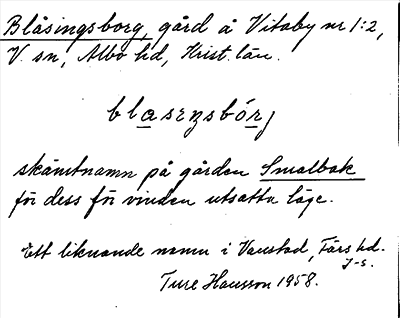 Blåsingsborg, gård å Vitaby nr 1:2,
V. sn, Albo hd, Krist. län.
blasezsbórj
skämtnamn på gården Smalbak
för dess för vinden utsatta läge.
Ett liknande namn i Vanstad, Färs hd.
J-s.
Ture Hansson 1958.